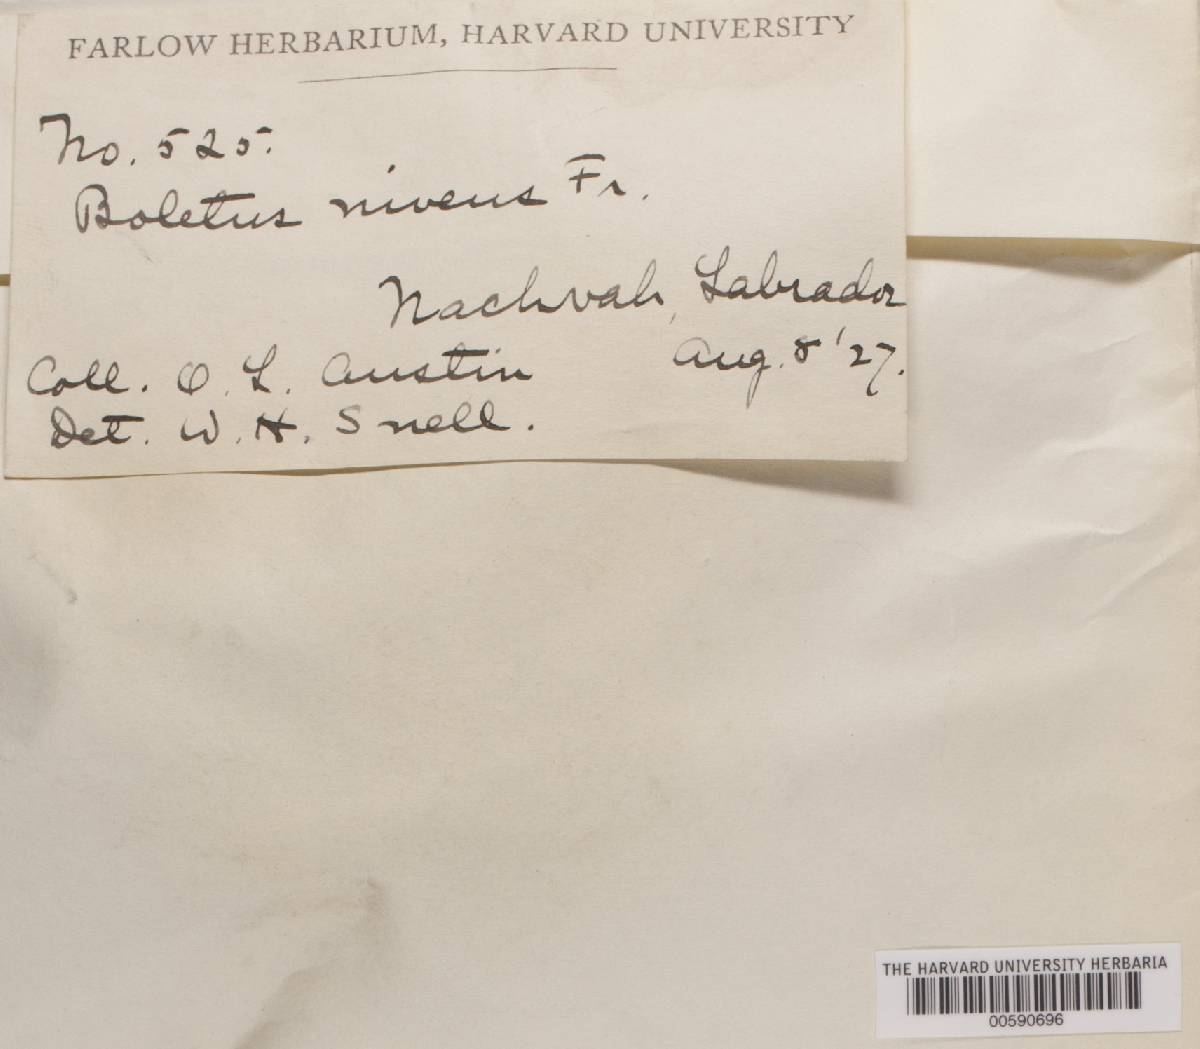 FARLOW HERBARIUM, HARVARD UNIVERSITY
No. 525.
Boletus niveus Fr.
Nachvah, Labrador
Coll. O. L. Austin Aug. 8 '27.
Det. W. H. Snell.
THE HARVARD UNIVERSITY HERBARIA
00590696